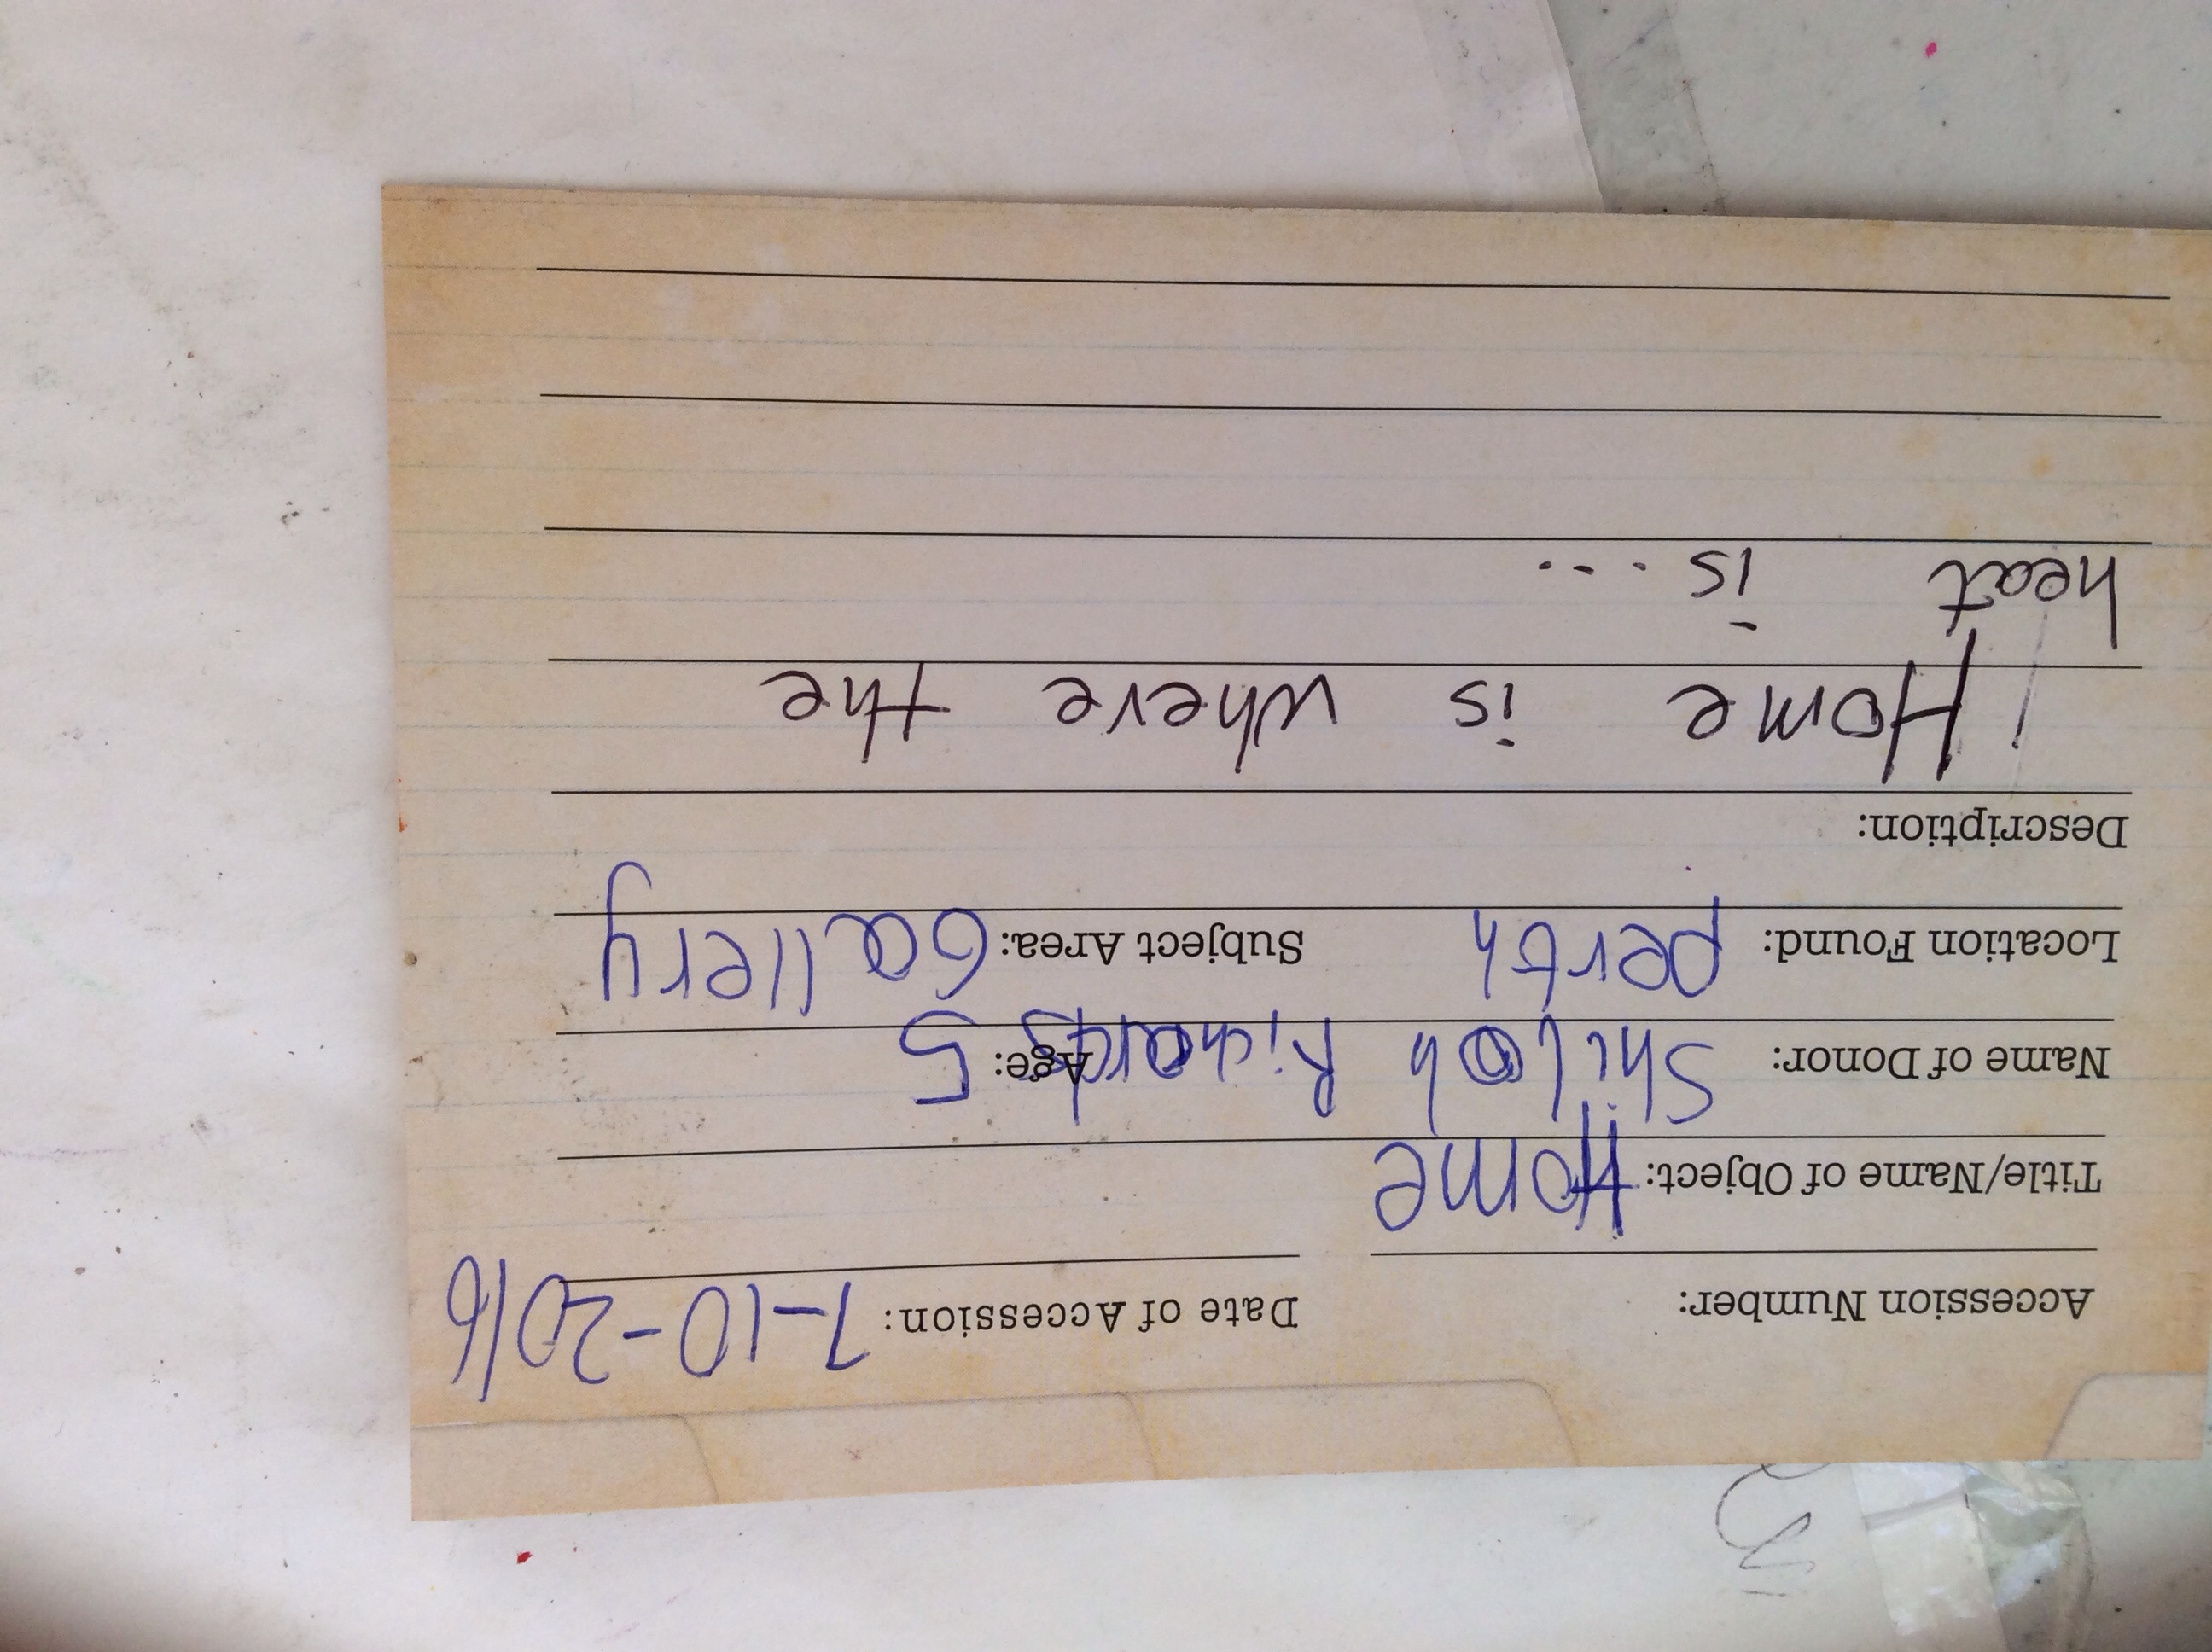 Accession Number: Date of Accession: 7-10-2016
Title/Name of Object: Home
Name of Donor: Shiloh Richards Age: 5
Location Found: perth Subject Area: Gallery
Description:
Home is where the
heat is ...